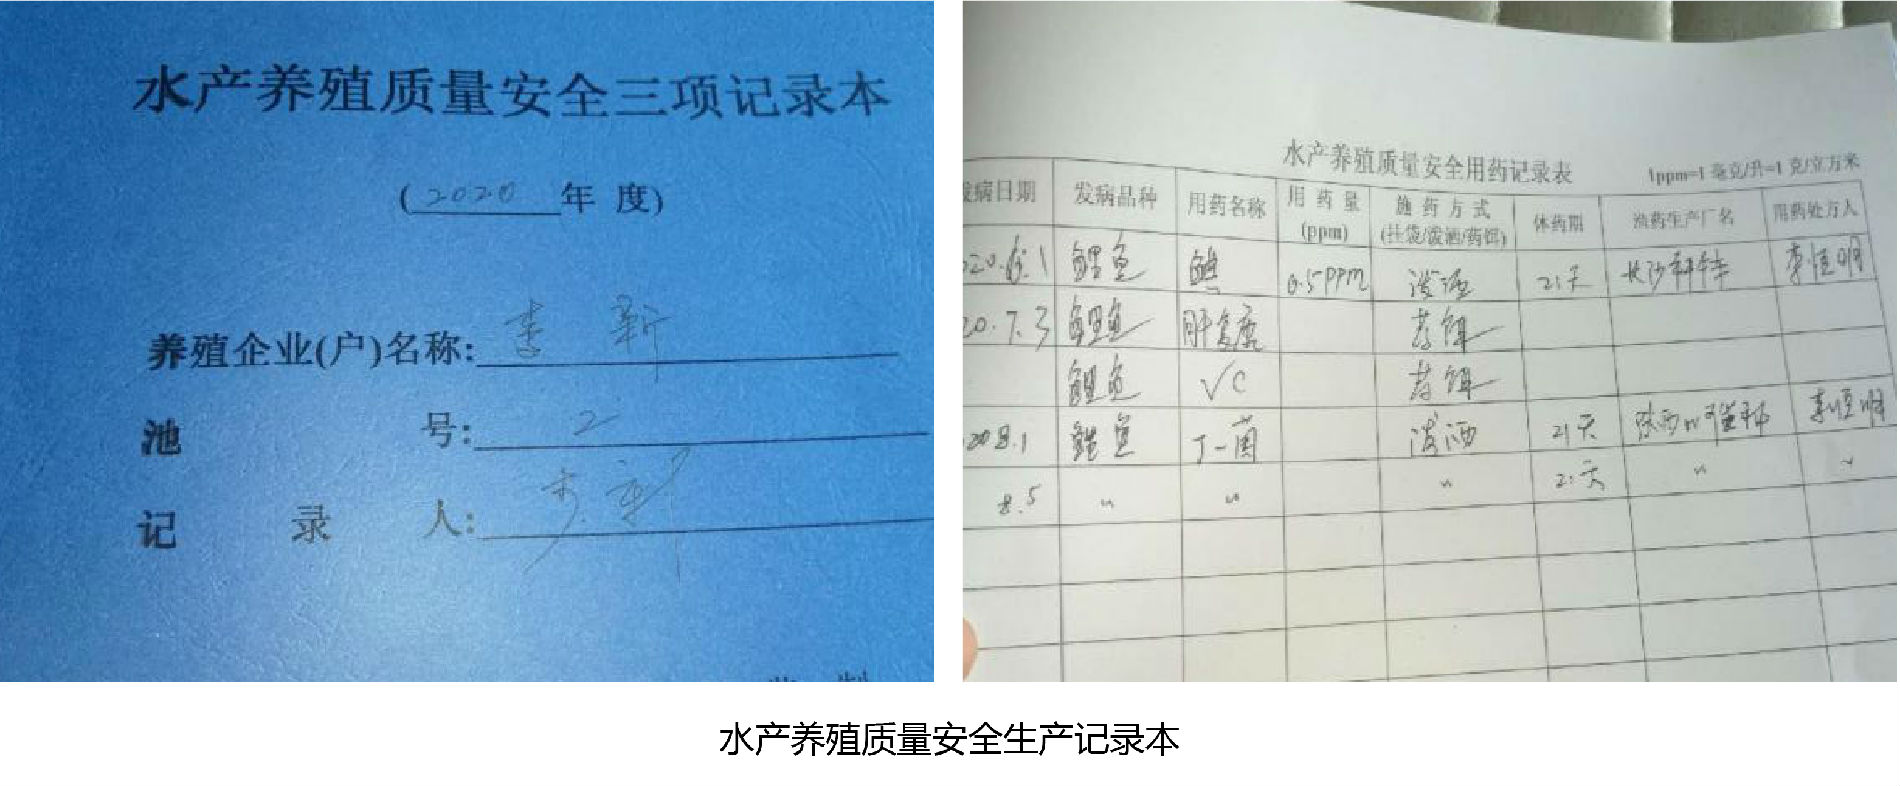 水产养殖质量安全三项记录本
(2020年度)
养殖企业(户)名称: 李新
池号: 2
记录人: 李新
水产养殖质量安全用药记录表
1ppm=1毫克/升=1克/立方米
病日期 发病品种 用药名称 用药量(ppm) 施药方式(挂袋/泼洒/药饵) 休药期 渔药生产厂名 用药处方人
20.6.1 鲤鱼 碘 0.5ppm 泼洒 21天 长沙 李恒明
20.7.3 鲤鱼 肝复康 药饵
鲤鱼 VC 药饵
20 8.1 鲤鱼 泼洒 21天 陕西 李恒明
8.5 〃 〃 〃 21天 〃 〃
水产养殖质量安全生产记录本